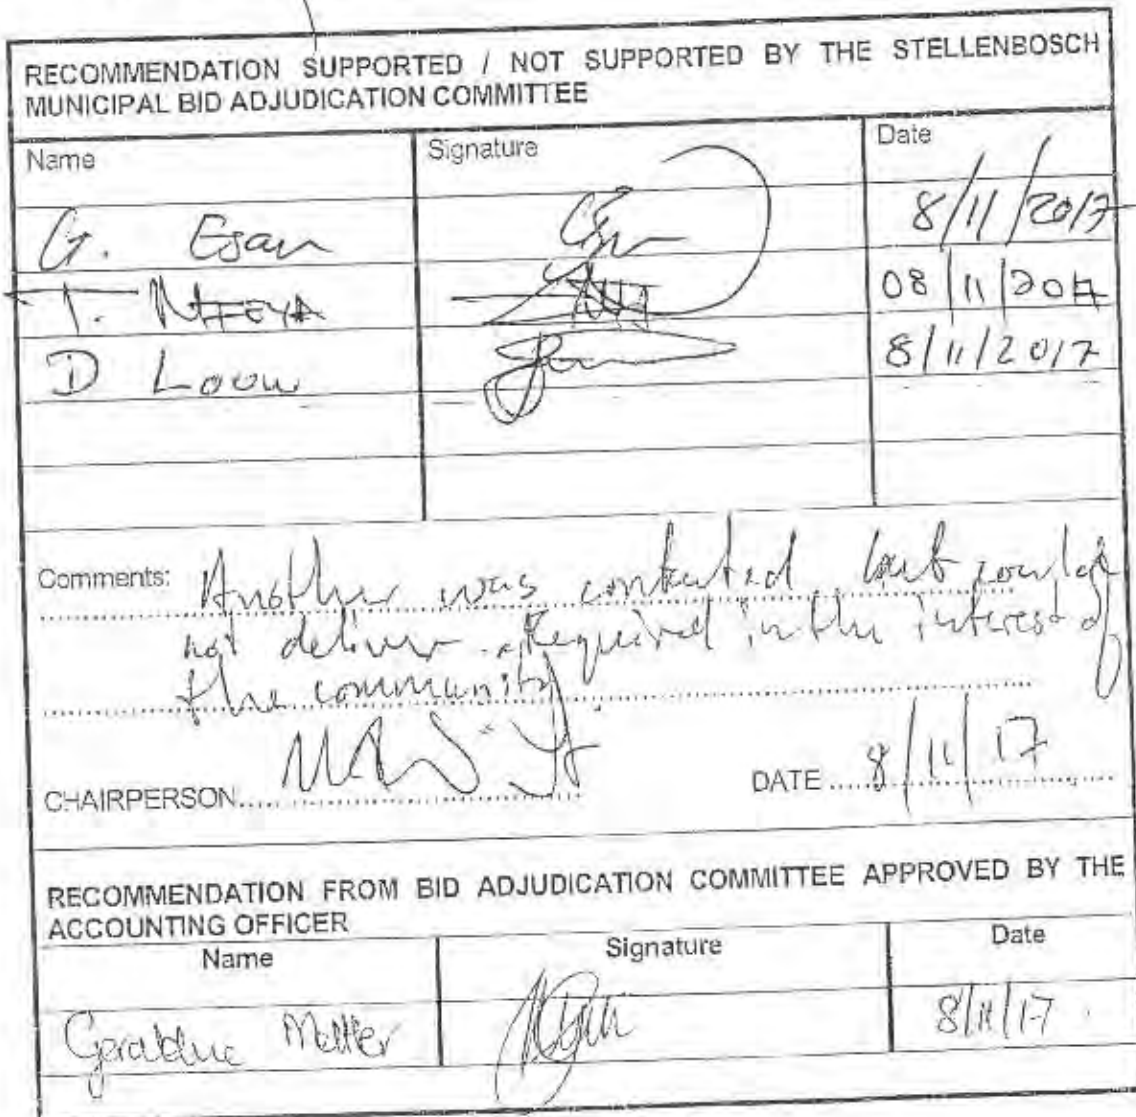 RECOMMENDATION SUPPORTED / NOT SUPPORTED BY THE STELLENBOSCH
MUNICIPAL BID ADJUDICATION COMMITTEE
Name Signature Date
G. Esau 8/11/2017
T. 08/11/2017
D Louw 8/11/2017
Comments: Another was contacted but could
not deliver. Required in the interest of
the community
CHAIRPERSON DATE 8/11/17
RECOMMENDATION FROM BID ADJUDICATION COMMITTEE APPROVED BY THE
ACCOUNTING OFFICER
Name Signature Date
Geraldine Mettler 8/11/17